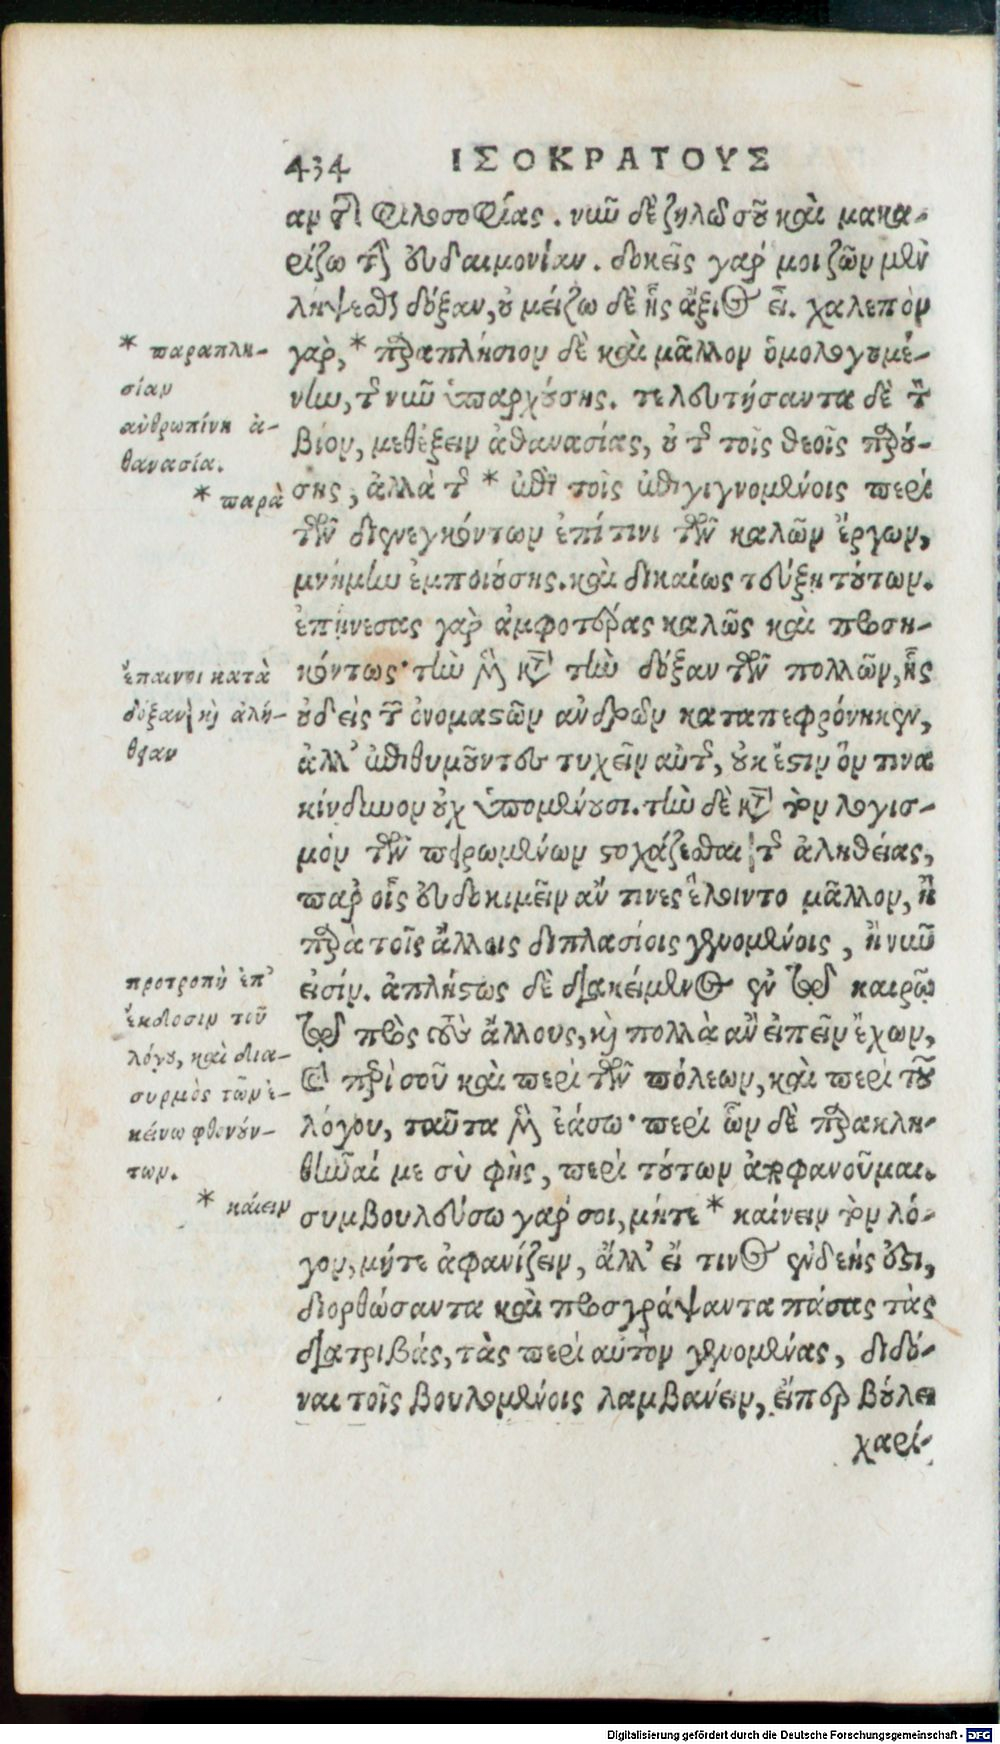 434 ΙΣΟΚΡΑΤΟΥΣ
αν τῇ φιλοσοφίας. νῦν δὲ ζηλῶ σοῦ καὶ μακα-
ρίζω τῆς εὐδαιμονίαν. δοκεῖς γάρ μοι ζῶν μὲν
λήψεσθαι δόξαν, οὐ μείζω δὲ ἧς ἄξιος εἶ. χαλεπὸν
* παραπλη-
σίαν
ἀνθρωπίνῃ ἀ-
θανασία.
γὰρ, * παραπλήσιον δὲ καὶ μᾶλλον ὁμολογουμέ-
νην, τῆς νῦν ὑπαρχούσης. τελευτήσαντα δὲ τὸν
βίον, μεθέξειν ἀθανασίας, οὐ τῆς τοῖς θεοῖς παρού-
* παρὰ
σης, ἀλλὰ τῆς * ἐπὶ τοῖς ἐπιγιγνομένοις περὶ
τῶν διενεγκόντων ἐπί τινι τῶν καλῶν ἔργων,
μνήμην ἐμποιούσης. καὶ δικαίως τεύξῃ τούτων.
ἐπῄνεσας γὰρ ἀμφοτέρας καλῶς καὶ προση-
ἔπαινοι κατὰ
δόξαν καὶ ἀλή-
θειαν
κόντως· τὴν μὲν κατὰ τὴν δόξαν τῶν πολλῶν, ἧς
οὐδεὶς τῶν ὀνομαστῶν ἀνδρῶν καταπεφρόνηκεν,
ἀλλ' ἐπιθυμοῦντες τυχεῖν αὐτῆς, οὐκ ἔστιν ὅν τινα
κίνδυνον οὐχ ὑπομένουσι. τὴν δὲ κατὰ τὸν λογισ-
μὸν τῶν πειρωμένων στοχάζεσθαι τῆς ἀληθείας,
παρ' οἷς εὐδοκιμεῖν ἄν τινες ἕλοιντο μᾶλλον, ἢ
παρὰ τοῖς ἄλλοις διπλασίοις γενομένοις, ἢ νῦν
προτροπὴ ἐπ'
ἔκδοσιν τοῦ
λόγου, καὶ δια-
συρμὸς τῶν ἐ-
κείνῳ φθονούν-
των.
εἰσίν. ἀπλήστως δὲ διακείμενος ἐν τῷ καιρῷ
τῷ πρὸς τοὺς ἄλλους, καὶ πολλὰ ἂν εἰπεῖν ἔχων,
καὶ περὶ σοῦ καὶ περὶ τῶν πόλεων, καὶ περὶ τοῦ
λόγου, ταῦτα μὲν ἐάσω· περὶ ὧν δὲ παρακλη-
θῆναί με σὺ φῄς, περὶ τούτων ἀποφανοῦμαι.
* κάιειν
συμβουλεύσω γάρ σοι, μήτε * καίνειν τὸν λό-
γον, μήτε ἀφανίζειν, ἀλλ' εἴ τινος ἐνδεής ἐστι,
διορθώσαντα καὶ προσγράψαντα πάσας τὰς
διατριβάς, τὰς περὶ αὐτὸν γενομένας, διδό-
ναι τοῖς βουλομένοις λαμβάνειν, εἴπερ βούλει
χαρί-
Digitalisierung gefördert durch die Deutsche Forschungsgemeinschaft - DFG